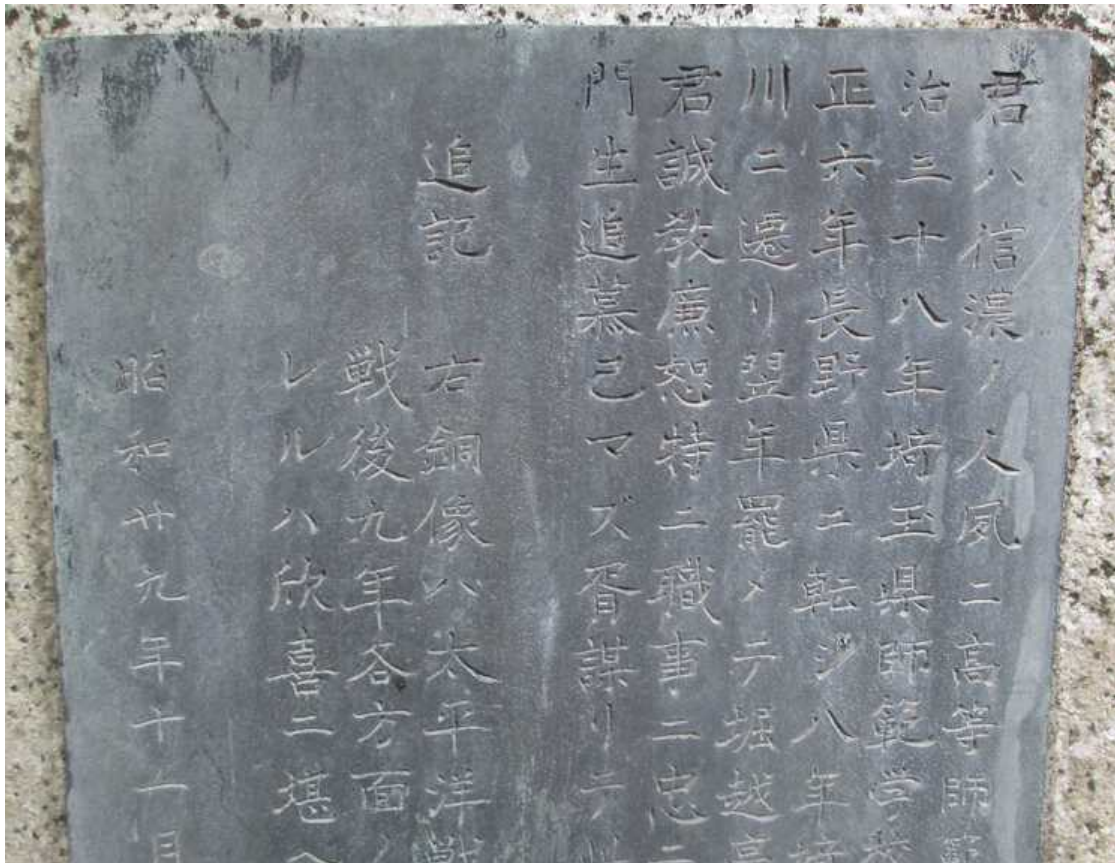 君ハ信濃ノ人夙ニ高等師範
治三十八年埼玉県師範学校
正六年長野県ニ転ジ八年埼
川ニ遷リ翌年罷メテ堀越高
君誠敬廉恕特ニ職事ニ忠ニ
門生追慕已マズ胥謀リテ
追記 右銅像ハ太平洋戦
戦後九年各方面ノ
レルハ欣喜ニ堪ヘ
昭和廿九年十一月